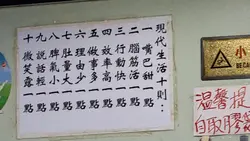 現代生活十則：
一嘴巴甜一點
二腦筋活一點
三行動快一點
四效率高一點
五做事多一點
六理由少一點
七肚量大一點
八脾氣小一點
九說話輕一點
十微笑露一點
小
溫馨提
自取膠